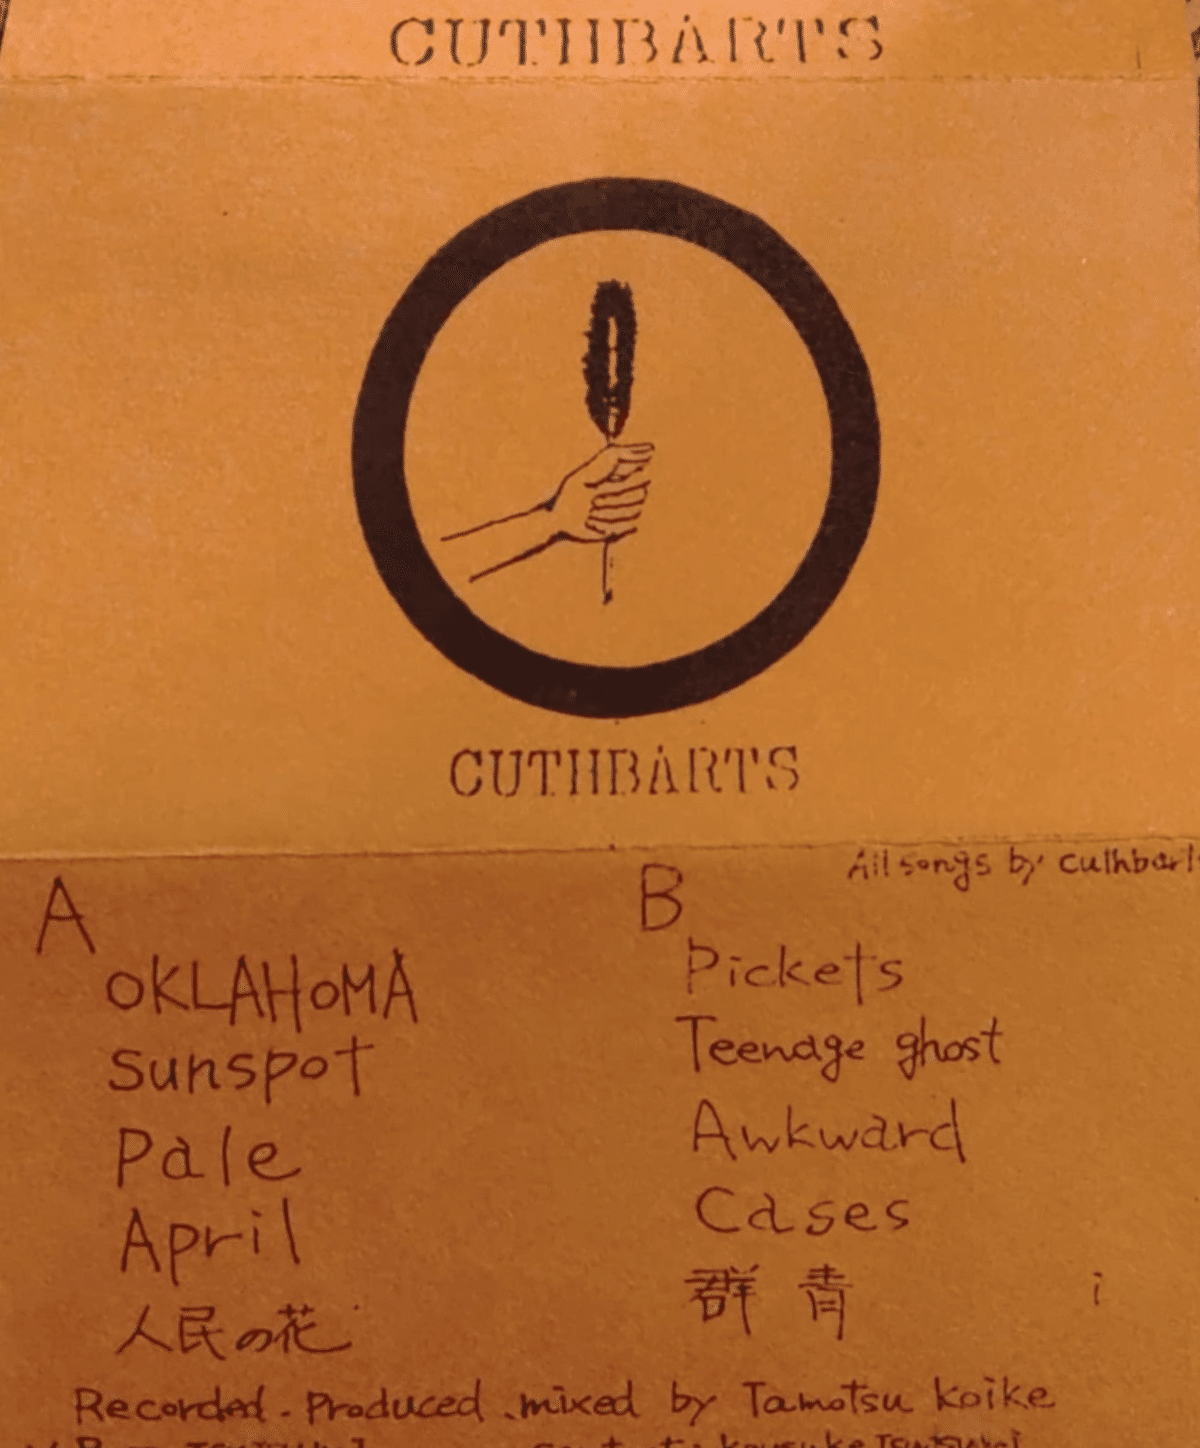 CUTHBARTS
CUTHBARTS
All songs by cuthbarts
A
OKLAHOMA
Sunspot
Pale
April
人民の花
B
Pickets
Teenage ghost
Awkward
Cases
群青
Recorded. Produced. mixed by Tamotsu Koike